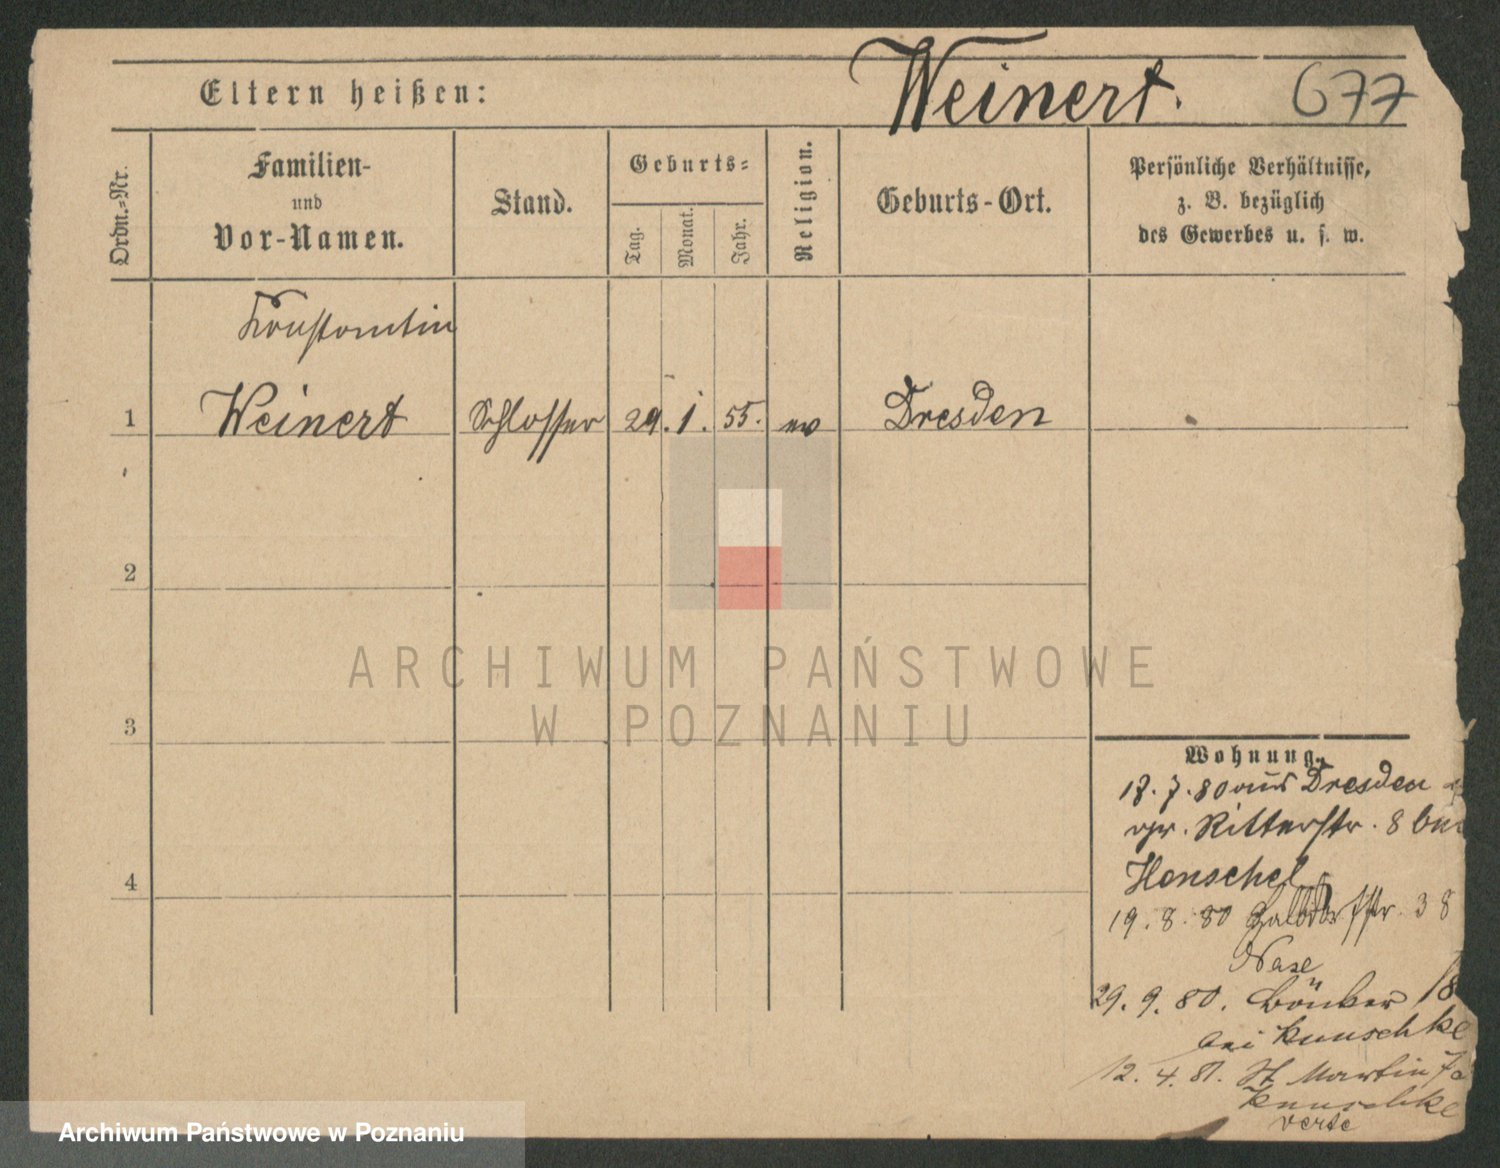 Eltern heißen:
Weinert.
677
Ordn.-Nr.
Familien-
und
Vor-Namen.
Stand.
Geburts-
Tag.
Monat.
Jahr.
Religion.
Geburts-Ort.
Persönliche Verhältnisse,
z. B. bezüglich
des Gewerbes u. s. w.
Konstantin
1 Weinert Schlosser 29. 1. 55. ev Dresden
2
3
4
Wohnung.
18. 7. 80 aus Dresden
Ritterstr. 8 bei
Henschel
19. 8. 80 Halbdorfstr. 38
Nase
29. 9. 80. Bäcker 18
bei Kunschke
12. 4. 81. St Martin
Kunschke
verte
ARCHIWUM PAŃSTWOWE
W POZNANIU
Archiwum Państwowe w Poznaniu